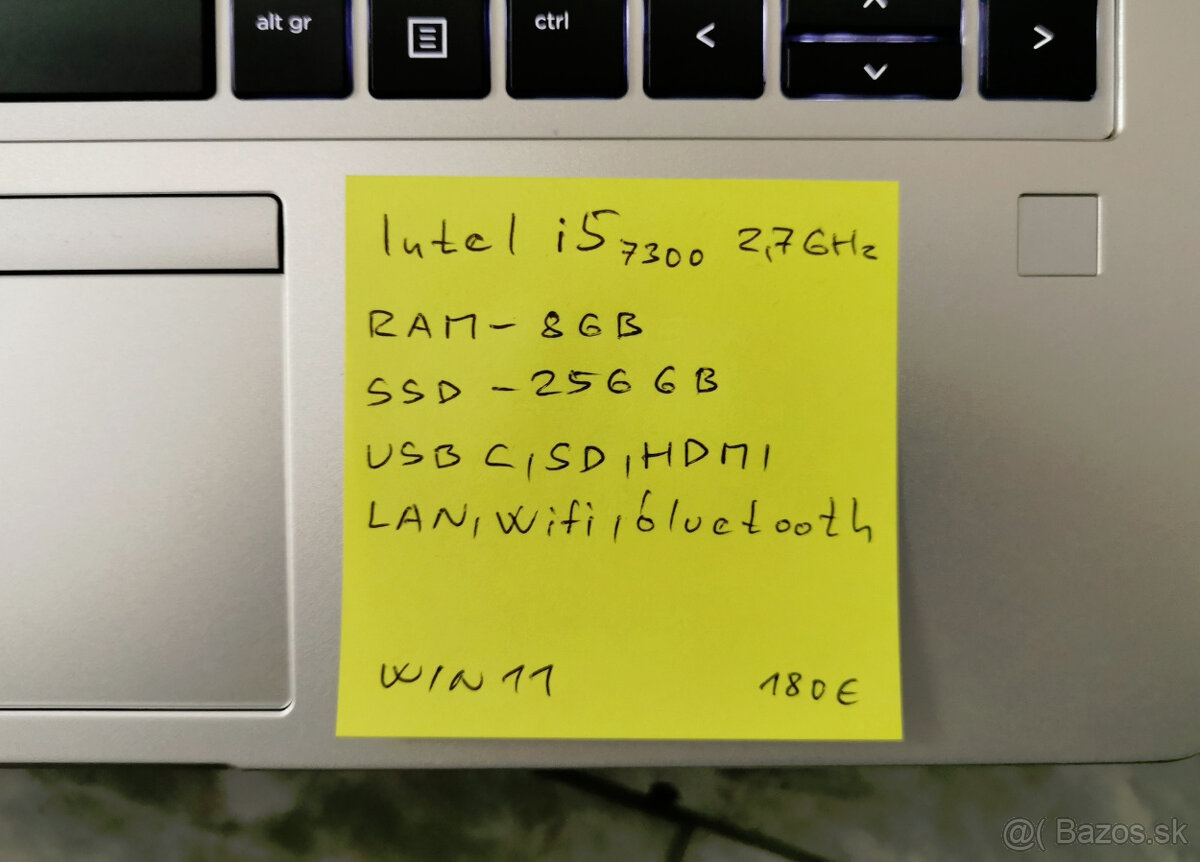 alt gr ctrl < >
Intel i5 7300 2,7GHz
RAM - 8GB
SSD - 256 GB
USB C, SD, HDMI
LAN, Wifi, bluetooth
WIN 11 180€
@( Bazos.sk